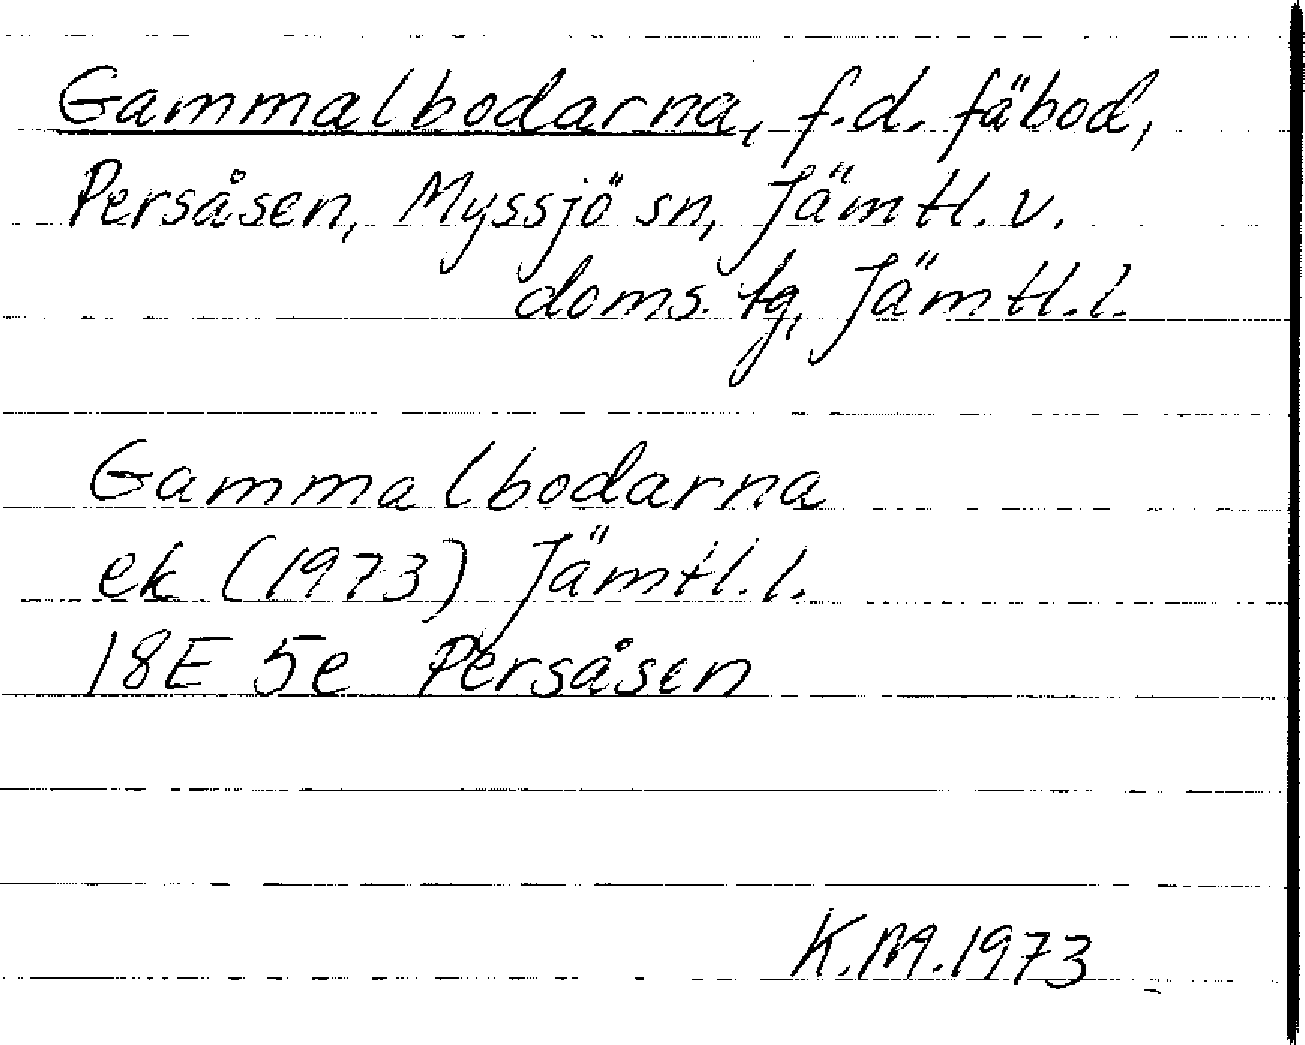 Gammalbodarna, f.d. fäbod,
Persåsen, Myssjö sn, Jämtl. v.
doms. tg, Jämtl. l.
Gammalbodarna
ek (1973) Jämtl. l.
18E 5e Persåsen
K.M. 1973